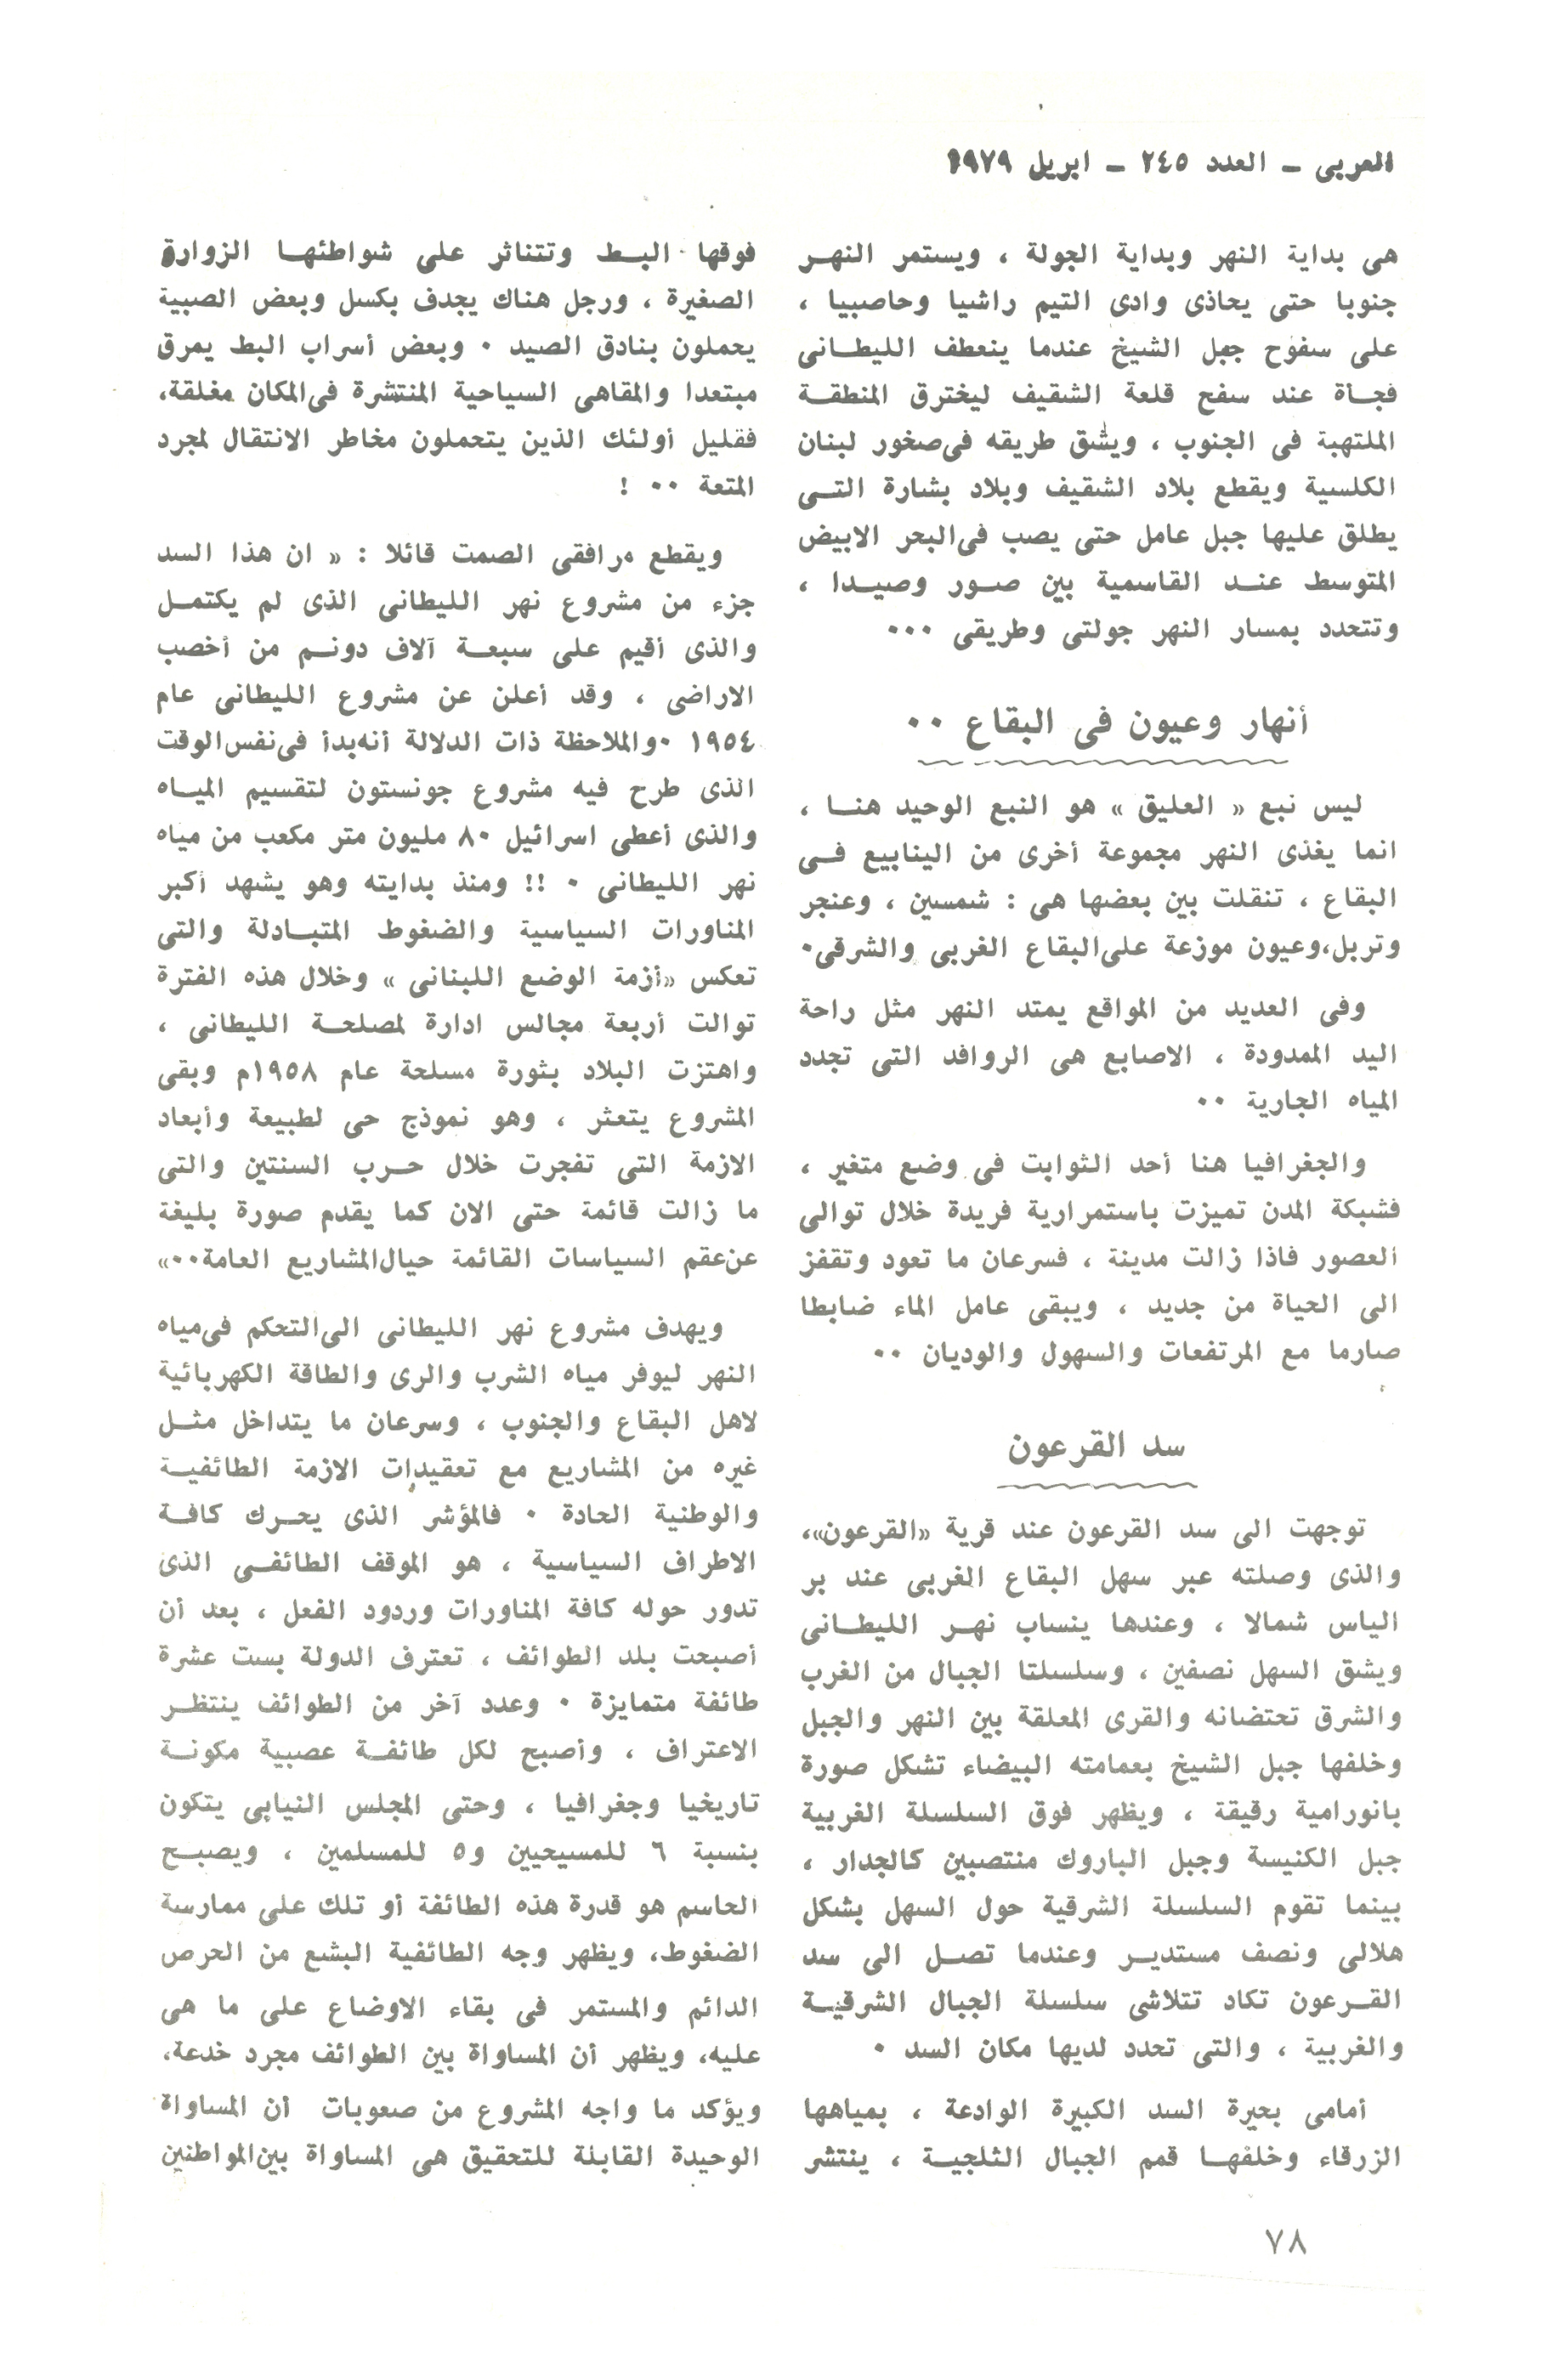 العربى ــ العدد ٢٤٥ ــ ابريل ١٩٧٩
هى بداية النهر وبداية الجولة ، ويستمر النهـر
جنوبا حتى يحاذى وادى التيم راشيا وحاصبيا ،
على سفوح جبل الشيخ عندما ينعطف الليطـانى
فجـأة عند سفح قلعة الشقيف ليخترق المنطقـة
الملتهبة فى الجنوب ، ويشق طريقه فى صخور لبنان
الكلسية ويقطع بلاد الشقيف وبلاد بشارة التـى
يطلق عليها جبل عامل حتى يصب فى البحر الابيض
المتوسط عنـد القاسمية بين صـور وصيـدا ،
وتتحدد بمسار النهر جولتى وطريقى ٠٠٠
أنهار وعيون فى البقاع ٠٠
ليس نبع « العليق » هو النبع الوحيد هنـا ،
انما يغذى النهر مجموعة أخرى من الينابيع فـى
البقاع ، تنقلت بين بعضها هى : شمسين ، وعنجر
وتربل،وعيون موزعة على البقاع الغربى والشرقى٠
وفى العديد من المواقع يمتد النهر مثل راحة
اليد الممدودة ، الاصابع هى الروافد التى تجدد
المياه الجارية ٠٠
والجغرافيا هنا أحد الثوابت فى وضع متغير ،
فشبكة المدن تميزت باستمرارية فريدة خلال توالى
العصور فاذا زالت مدينة ، فسرعان ما تعود وتقفز
الى الحياة من جديد ، ويبقى عامل الماء ضابطا
صارما مع المرتفعات والسهول والوديان ٠٠
سد القرعون
توجهت الى سد القرعون عند قرية «القرعون»،
والذى وصلته عبر سهل البقاع الغربى عند بر
الياس شمالا ، وعندها ينساب نهـر الليطـانى
ويشق السهل نصفين ، وسلسلتا الجبال من الغرب
والشرق تحتضانه والقرى المعلقة بين النهر والجبل
وخلفها جبل الشيخ بعمامته البيضاء تشكل صورة
بانورامية رقيقة ، ويظهر فوق السلسلة الغربية
جبل الكنيسة وجبل الباروك منتصبين كالجدار ،
بينما تقوم السلسلة الشرقية حول السهل بشكل
هلالى ونصف مستديـر وعندما تصـل الى سد
القـرعون تكاد تتلاشى سلسلة الجبال الشرقيـة
والغربية ، والتى تحدد لديها مكان السد ٠
أمامى بحيرة السد الكبيرة الوادعة ، بمياهها
الزرقاء وخلفهـا قمم الجبال الثلجيـة ، ينتشر
فوقها البـط وتتناثر على شواطئهـا الزوارق
الصغيرة ، ورجل هناك يجدف بكسل وبعض الصبية
يحملون بنادق الصيد ٠ وبعض أسراب البط يمرق
مبتعدا والمقاهى السياحية المنتشرة فى المكان مغلقة،
فقليل أولئك الذين يتحملون مخاطر الانتقال لمجرد
المتعة ٠٠ !
ويقطع مرافقى الصمت قائلا : « ان هذا السد
جزء من مشروع نهر الليطانى الذى لم يكتمـل
والذى أقيم على سبعـة آلاف دونـم من أخصب
الاراضى ، وقد أعلن عن مشروع الليطانى عام
١٩٥٤ ٠والملاحظة ذات الدلالة أنه بدأ فى نفس الوقت
الذى طرح فيه مشروع جونستون لتقسيم الميـاه
والذى أعطى اسرائيل ٨٠ مليون متر مكعب من مياه
نهر الليطانى ٠ !! ومنذ بدايته وهو يشهد أكبر
المناورات السياسية والضغوط المتبـادلة والتى
تعكس «أزمة الوضع اللبنانى » وخلال هذه الفترة
توالت أربعة مجالس ادارة لمصلحـة الليطانى ،
واهتزت البلاد بثورة مسلحة عام ١٩٥٨م وبقى
المشروع يتعثر ، وهو نموذج حى لطبيعة وأبعاد
الازمة التى تفجرت خلال حـرب السنتين والتى
ما زالت قائمة حتى الان كما يقدم صورة بليغة
عن عقم السياسات القائمة حيال المشاريع العامة٠٠»
ويهدف مشروع نهر الليطانى الى التحكم فى مياه
النهر ليوفر مياه الشرب والرى والطاقة الكهربائية
لاهل البقاع والجنوب ، وسرعان ما يتداخل مثـل
غيره من المشاريع مع تعقيدات الازمة الطائفيـة
والوطنية الحادة ٠ فالمؤشر الذى يحـرك كافـة
الاطراف السياسية ، هو الموقف الطائفـى الذى
تدور حوله كافة المناورات وردود الفعل ، بعد أن
أصبحت بلد الطوائف ، تعترف الدولة بست عشرة
طائفة متمايزة ٠ وعدد آخر من الطوائف ينتظـر
الاعتراف ، وأصبح لكل طائفـة عصبية مكونـة
تاريخيا وجغرافيا ، وحتى المجلس النيابى يتكون
بنسبة ٦ للمسيحيين و٥ للمسلمين ، ويصبـح
الحاسم هو قدرة هذه الطائفة أو تلك على ممارسة
الضغوط، ويظهر وجه الطائفية البشع من الحرص
الدائم والمستمر فى بقاء الاوضاع على ما هى
عليه، ويظهر أن المساواة بين الطوائف مجرد خدعة،
ويؤكد ما واجه المشروع من صعوبات أن المساواة
الوحيدة القابلة للتحقيق هى المساواة بين المواطنين
٧٨